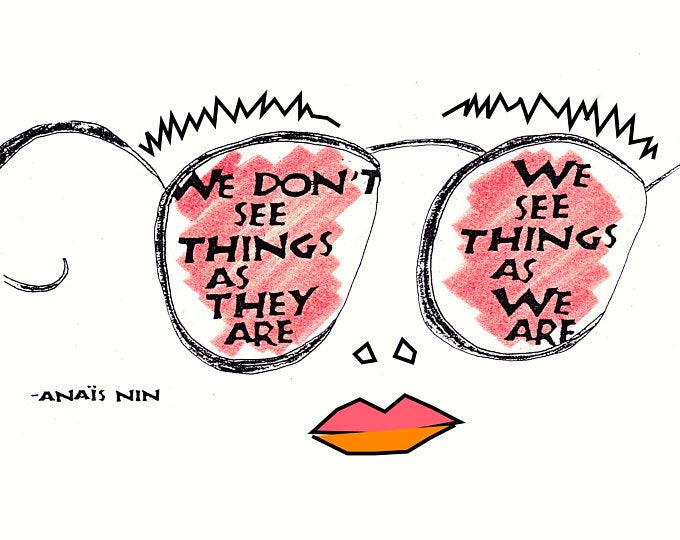 WE DON'T
SEE
THINGS
AS
THEY
ARE
WE
SEE
THINGS
AS
WE
ARE
-ANAÏS NIN